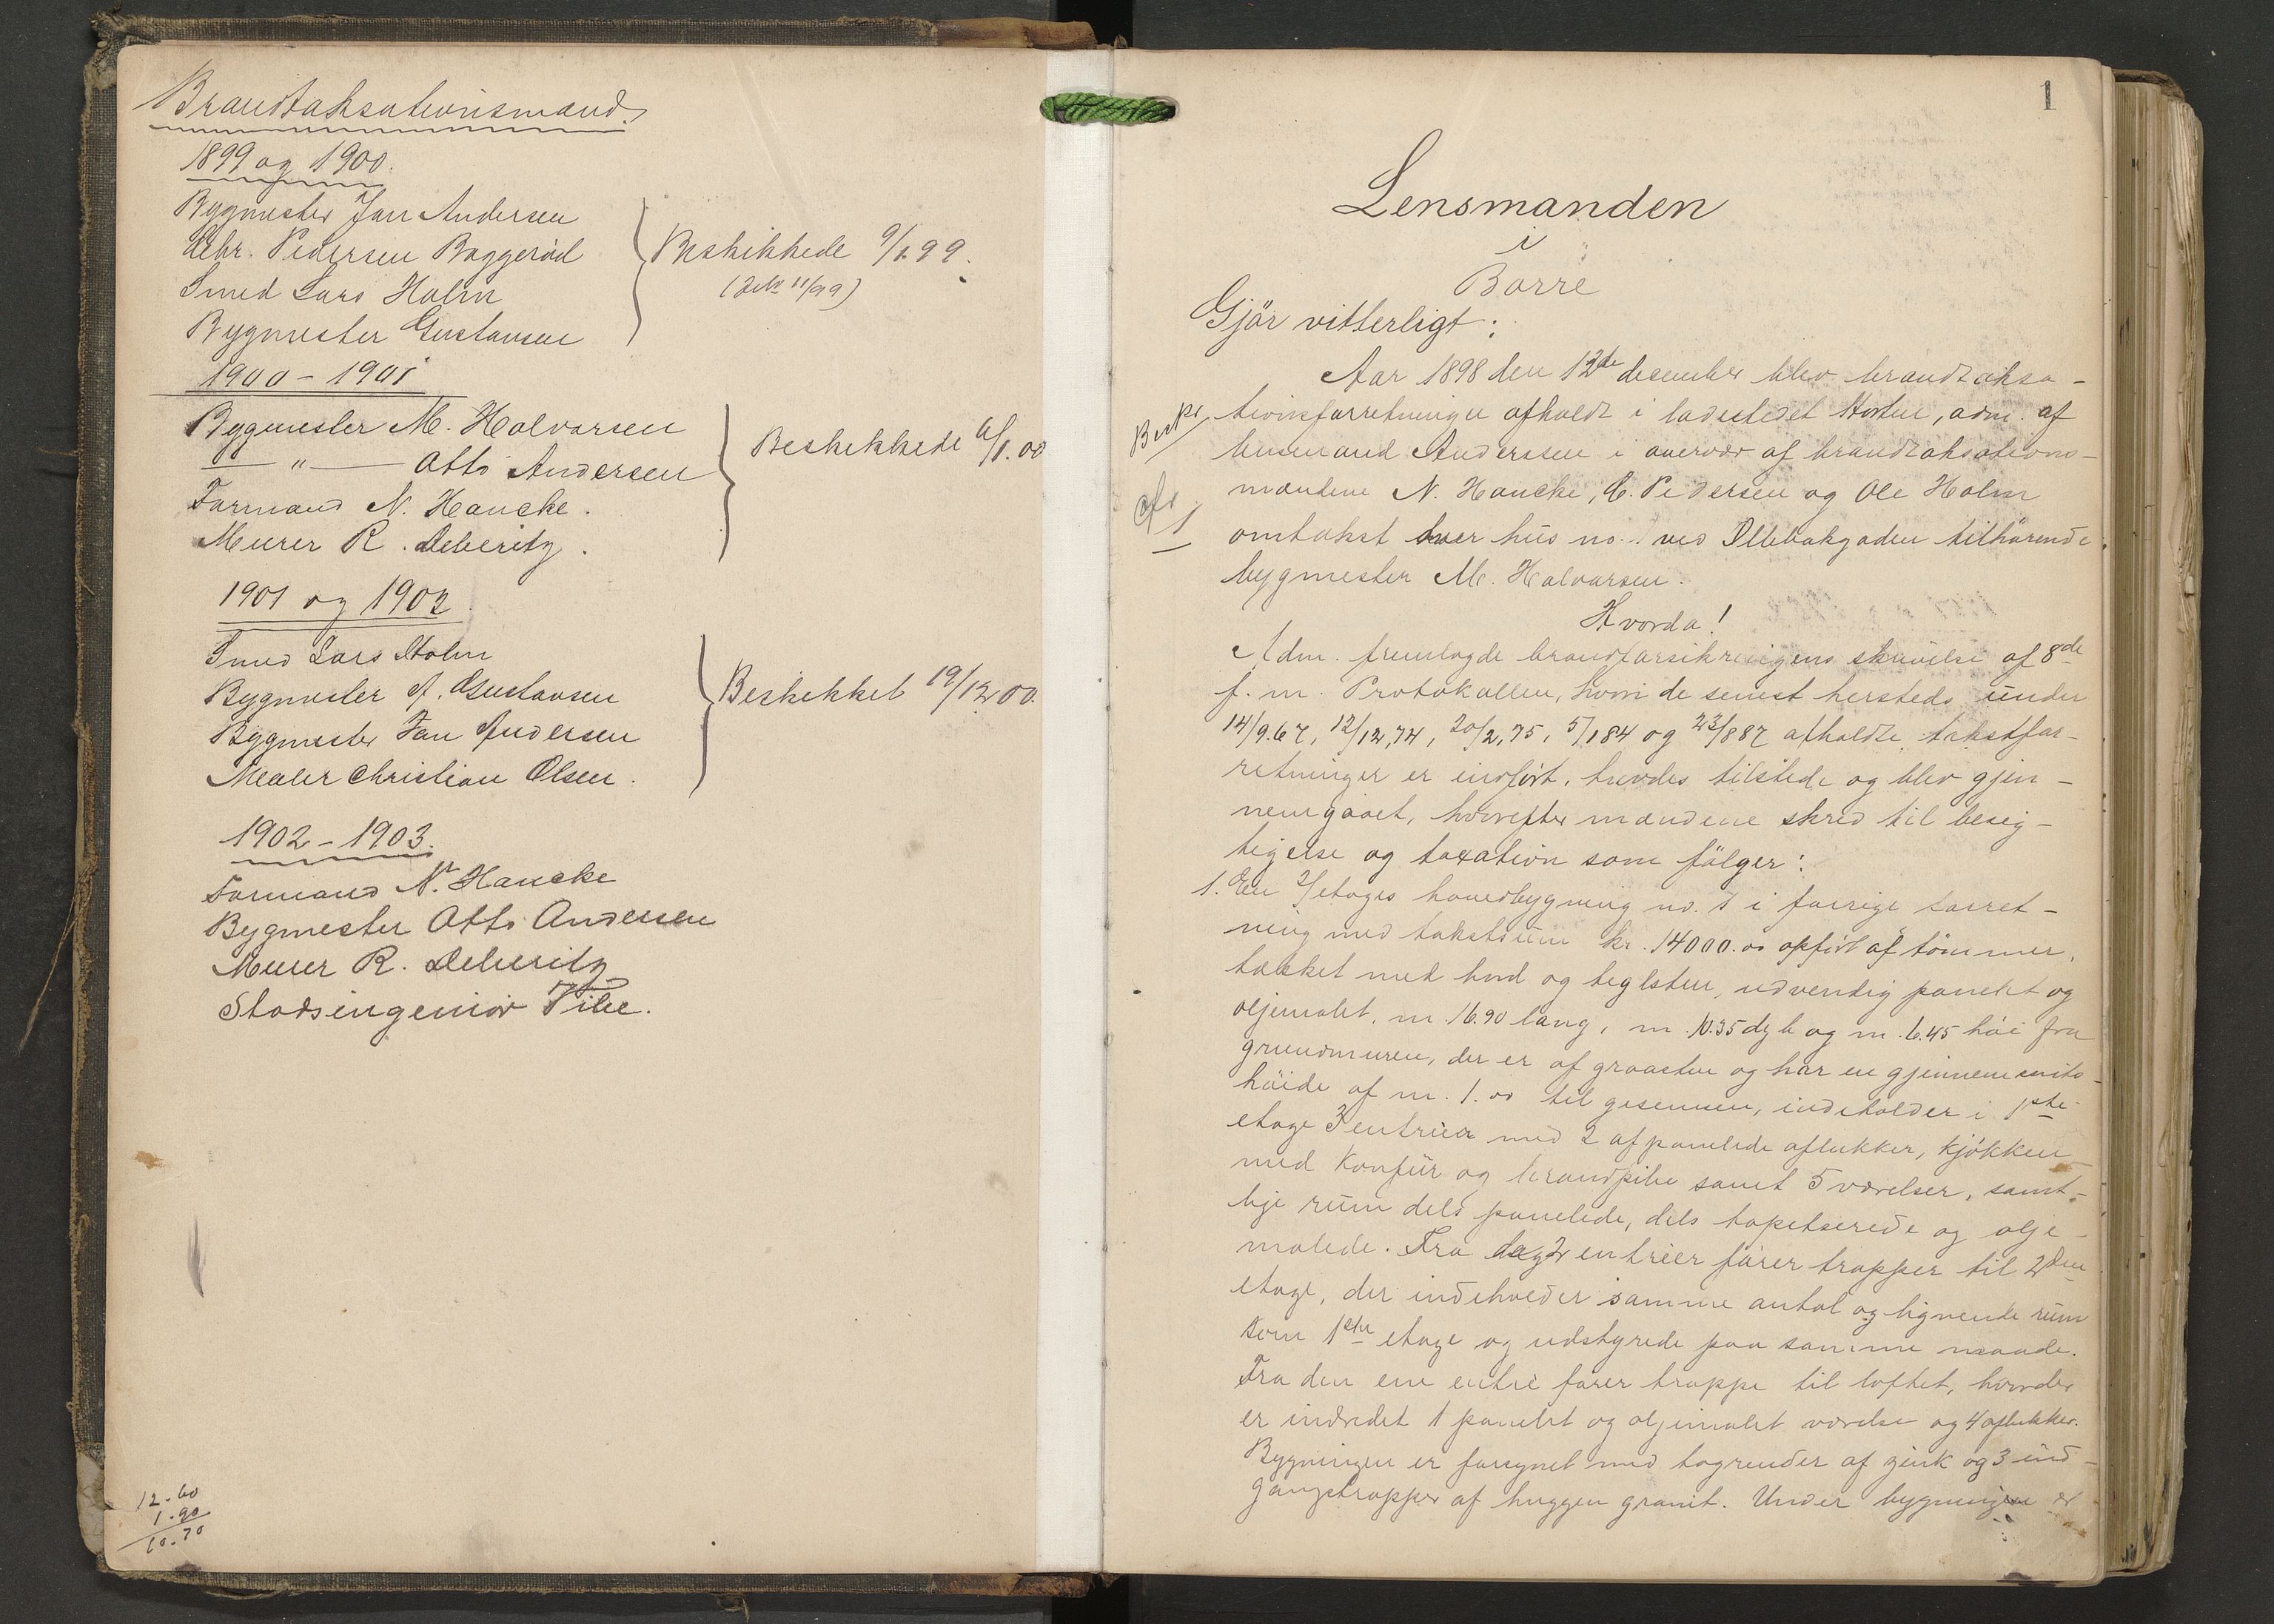 Brandtaksationsmænd.
1899 og 1900.
Bygmester Jan Andersen
Chr. Pedersen Baggerød
Smed Lars Holm
Bygmester Gustavsen
Beskikkede 9/1.99.
1900 - 1901
Bygmester M. Halvorsen
— " — Otto Andersen
Formand N. Hancke.
Murer R. Deberitz.
Beskikkede 6/1.00
1901 og 1902
Smed Lars Holm
Bygmester A. Gustavsen
Bygmester Jan Andersen
Maler Christian Olsen.
Beskikket 19/12 00.
1902 - 1903.
Formand N. Hancke
Bygmester Otto Andersen
Murer R. Deberitz
Stadsingeniør Pihl.
12.60
1.90
10.70
1
Lensmanden
i
Borre
Gjör vitterligt:
Aar 1898 den 12de december blev brandtaksa-
tionsforretninger afholdt i ladestedet Horten, adm. af
lensmand Anderssen i overvær af brandtaksations-
mændene N. Hancke, C. Pedersen og Ole Holm
omtakst over hus no. 1 ved Ollebakgaden tilhörende
bygmester M. Halvorsen.
Hvorda!
Adm. fremlagde brandforsikringens skrivelse af 8de
f. m. Protokollen, hvori de senest hersteds under
14/9.67, 12/12,74, 20/2,75, 5/1 84 og 23/8 87 afholdte takstfor-
retninger er indført, havdes tilstede og blev gjen-
nemgaaet, hvorefter mændene skred til besig-
tigelse og taxation som fölger:
1. En 2 etages hovedbygning no. 1 i forrige forret-
ning med takstsum kr. 14000.00 opført af tömmer,
tækket med bord og teglsten, udvendig panelet og
oljemalet, m. 16.90 lang, m. 10.35 dyb og m. 6.45 höi fra
grundmuren, der er af graasten og har en gjennemsnits-
höide af m. 1.00 til gesemsen, indeholder i 1ste
etage 3 entrèer med 2 afpanelede aflukker, kjökken
med komfür og brandpibe samt 5 værelser, samt-
lige rüm dels panelede, dels tapetserede og olje-
malede. Fra 2 entrèer förer trapper til 2den
etage, der indeholder samme antal og lignende rüm
som 1ste etage og udstyrede paa samme maade.
Fra den ene entrè förer trappe til loftet, hvorder
er indredet 1 panelet og oljemalet værelse og 4 aflukker.
Bygningen er forsynet med tagrender af zink og 3 ind-
gangstrapper af huggen granit. Under bygningen er